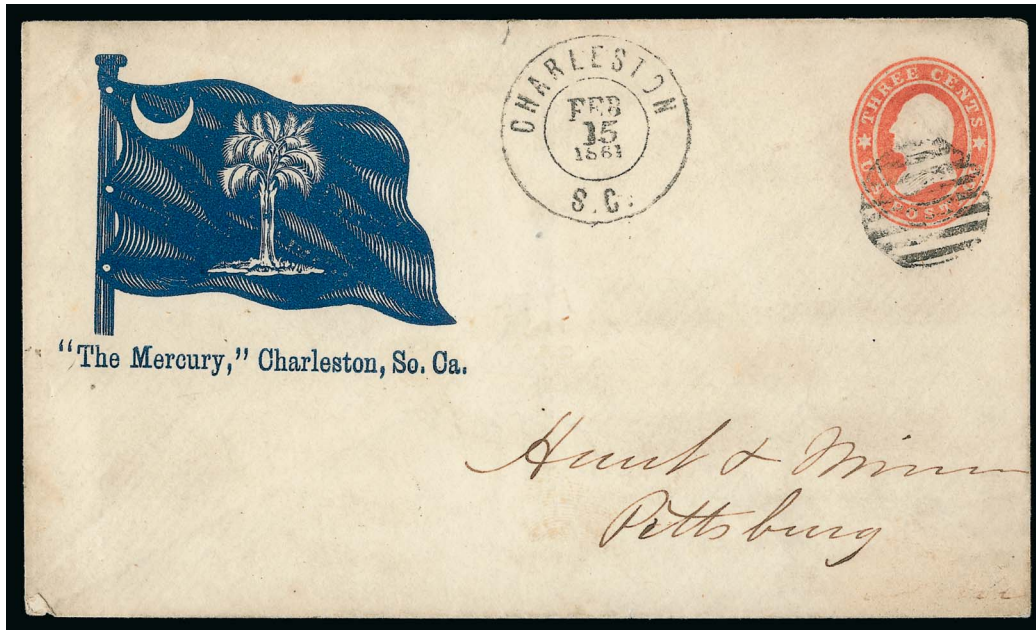 CHARLESTON
FEB
15
1861
S.C.
THREE CENTS
U.S. POSTAGE
"The Mercury," Charleston, So. Ca.
Hunt & Miner
Pittsburg